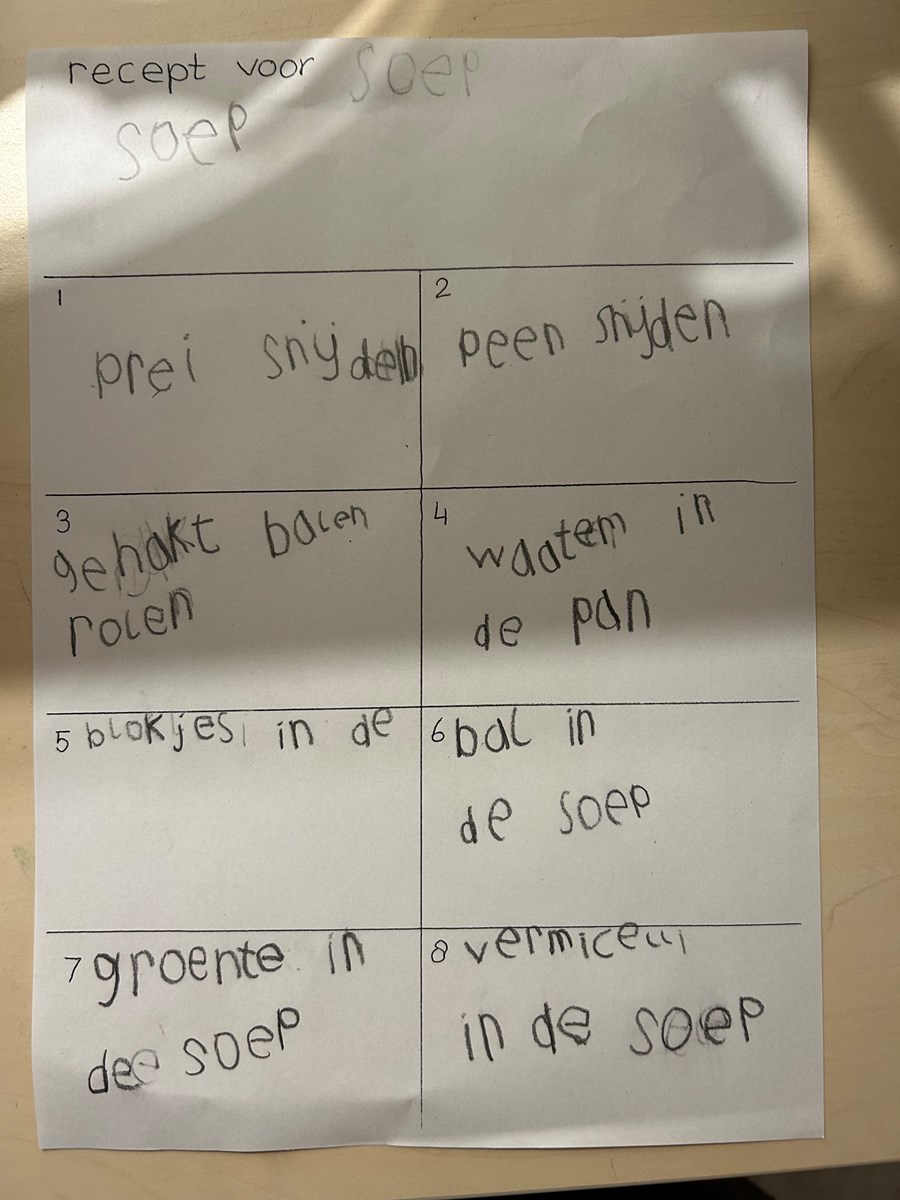 recept voor soep
soep
1
prei snijden
2
peen snijden
3
gehakt balen
rolen
4
waatem in
de pan
5 blokjes in de
6 bal in
de soep
7 groente in
dee soep
8 vermicelli
in de soep